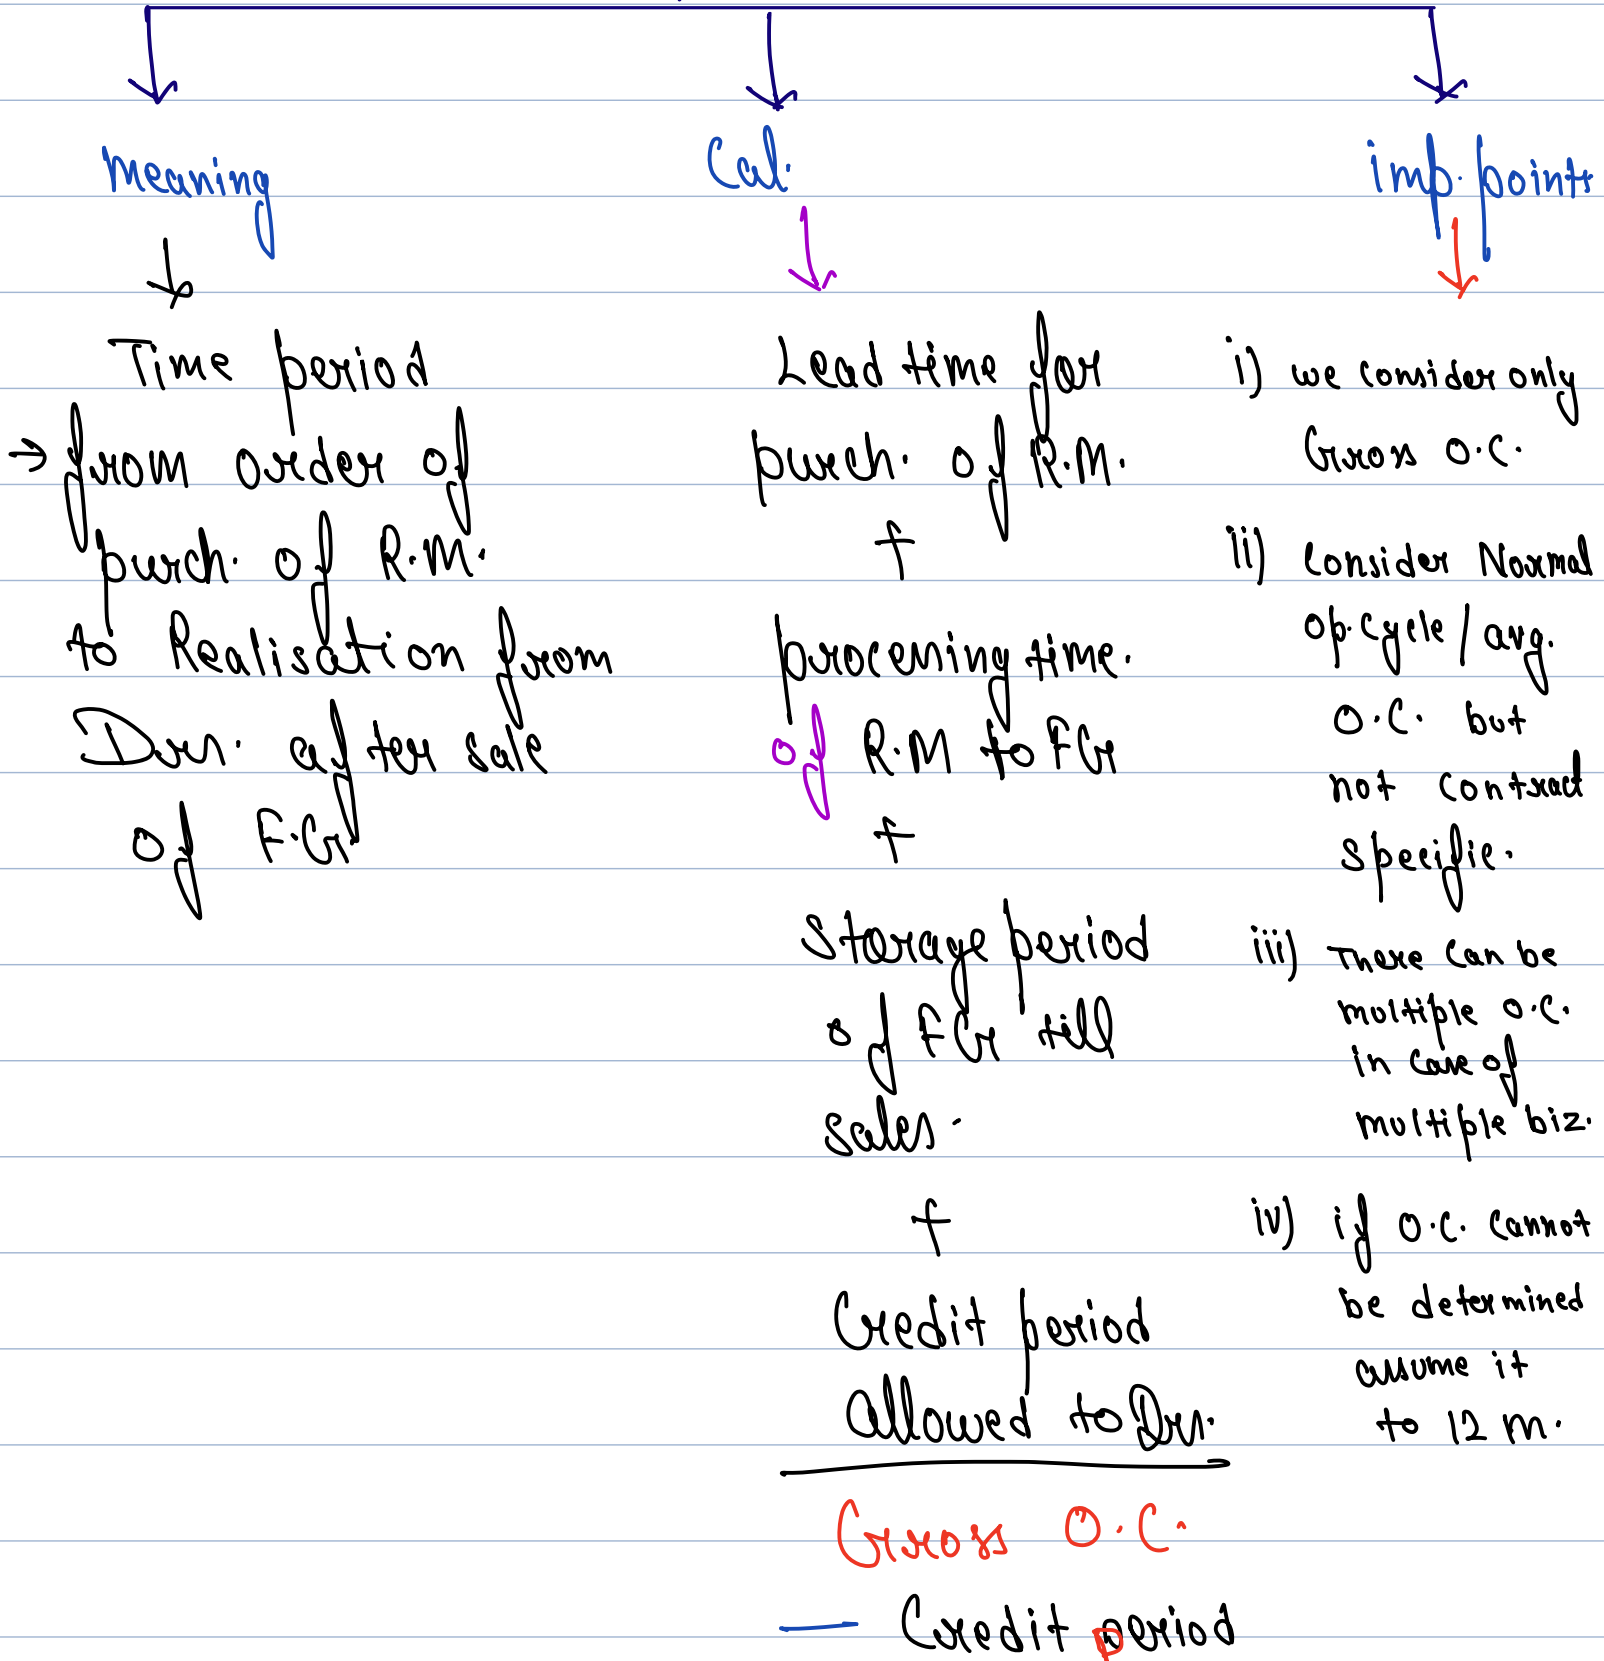 Meaning
↓
Time period
→ from order of
purch. of R.M.
to Realisation from
Drs. after sale
of F.G
Cal.
↓
Lead time for
purch. of R.M.
+
processing time.
of R.M to FG
+
Storage period
of FG till
sales.
+
Credit period
allowed to Drs.
Gross O.C.
— Credit period
imp. points
↓
i) we consider only
Gross O.C.
ii) Consider Normal
op.cycle / avg.
O.C. but
not contract
specific.
iii) There can be
multiple O.C.
in case of
multiple biz.
iv) if O.C. cannot
be determined
assume it
to 12 m.